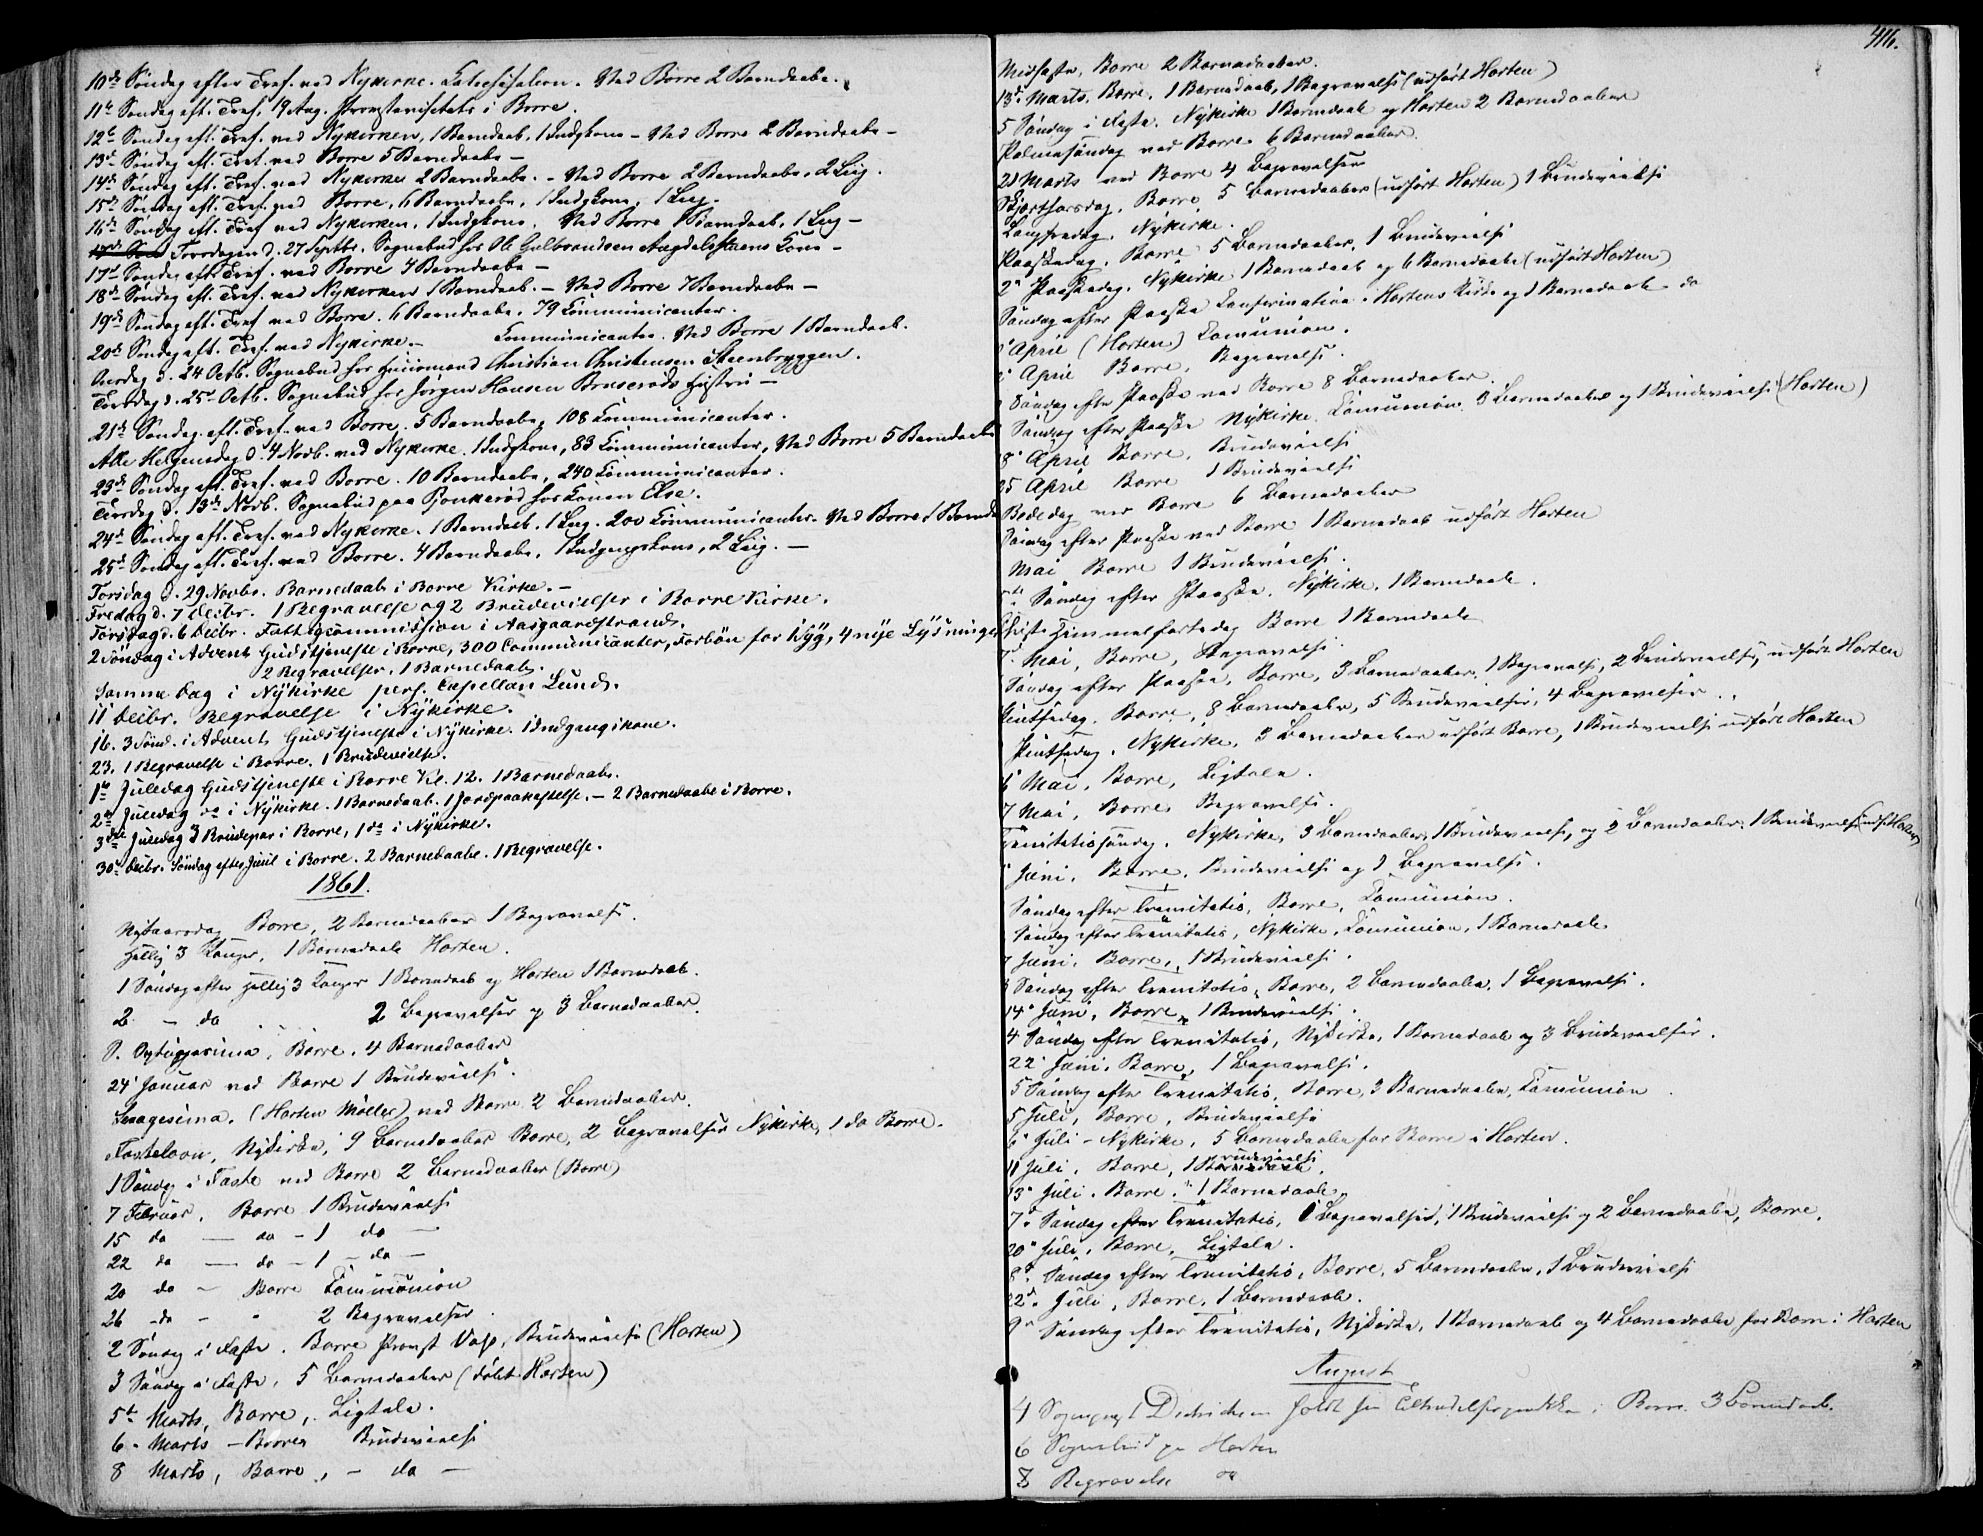 10de Søndag efter Tref. ved Nykirke. Catechisation. Ved Borre 2 Barndaabe.
11te Søndag eft. Tref. 19 Aug. Provstevisitats i Borre.
12te Søndag eft. Tref. ved Nykirken, 1 Barndaab, 1 Indgkone - Ved Borre 2 Barndaabe -
13de Søndag eft. Tref. ved Borre 5 Barndaabe -
14de Søndag eft. Tref. ved Nykirke 2 Barndaabe. - Ved Borre 2 Barndaabe, 2 Liig.
15de Søndag eft. Tref. ved Borre, 6 Barndaabe, 1 Indgkone, 1 Liig.
16de Søndag eft. Tref. ved Nykirken, 1 Indgkone, Ved Borre 1 Barndaab, 1 Liig -
Torsdagen d. 27 Septbr. Sognebud hos Ole Gulbrandsen Kone -
17de Søndag eft. Tref. ved Borre 4 Barndaabe -
18de Søndag eft. Tref. ved Nykirken 1 Barndaab. - Ved Borre 7 Barndaabe -
19de Søndag eft. Tref. ved Borre. 6 Barndaabe. 79 Communicanter.
20de Søndag eft. Tref. ved Nykirke. - Communicanter. Ved Borre 1 Barndaab.
Onsdag d. 24 Octb. Sognebud hos Huusmand Christian Christensen Steenbryggen.
Torsdag d. 25de Octb. Sognebud hos Jörgen Hansen Bruserøds Hustru -
21de Søndag eft. Tref. ved Borre. 5 Barndaabe, 108 Communicanter.
Alle Helgensdag d. 4 Novb. ved Nykirke. 1 Indgkone, 83 Communicanter, Ved Borre 5 Barndaabe
23de Søndag eft. Tref. ved Borre. 10 Barndaabe, 240 Communicanter.
Tirsdag d. 13de Novb. Sognebud paa hos Konen Else.
24de Søndag eft. Tref. ved Nykirke. 1 Barndaab. 1 Liig. 200 Communicanter. Ved Borre 1 Barnda
25de Søndag eft. Tref. ved Borre. 4 Barndaabe, 1 Indgangskone, 2 Liig. -
Torsdag d. 29 Novbr. Barnedaab i Borre Kirke. -
Fredag d. 7 Decbr. 1 Begravelse og 2 Brudevielser i Borre Kirke.
Torsdag d. 6 Decbr. Fattigcommission i Aasgaardstrand.
2 Søndag i Advent Gudstjeneste i Borre, 300 Communicanter, Forbön for 1 syg, 4 nye Lysninger
2 Begravelser, 1 Barnedaab.
Samme Dag i Nykirke pers. Capellan Lund.
11 Decbr. Begravelse i Nykirke.
16. 3 Sönd. i Advent, Gudstjeneste i Nykirke. 1 Indgangskone.
23. 1 Begravelse i Borre. 1 Brudevielse.
1ste Juledag Gudstjeneste i Borre Kl. 12. 1 Barnedaab.
2den Juledag do i Nykirke. 1 Barnedaab. 1 Jordpaakastelse. - 2 Barnedaabe i Borre.
3die Juledag 3 Brudepar i Borre, 1 do i Nykirke.
30te Decbr. Söndag efter Juul i Borre. 2 Barnedaabe. 1 Begravelse.
1861.
Nytaarsdag Borre, 2 Barnedaaber 1 Begravelse.
Hellig 3 Konger, 1 Barnedaab Horten.
1 Søndag efter Hellig 3 Konger 1 Barndaab og Horten 1 Barnedaab.
2 - do 2 Begravelser og 3 Barnedaaber.
S. Septuagesima, Borre, 4 Barnedaaber
24 Januar ved Borre 1 Brudevielse.
Sexagesima. (Horten Møller) ved Borre 2 Barnedaaber.
Fastelavn, Nykirke, 9 Barnedaaber Borre, 2 Begravelser Nykirke, 1 do Borre.
1 Søndag i Faste ved Borre 2 Barnedaaber (Borre)
7 Februar, Borre 1 Brudevielse
15 do — do - 1 do —
22 do — do - 1 - do —
20 do - Borre Communion
26 - do - " 2 Begravelser.
2 Søndag i Faste. Borre Provst , Brudevielse (Horten)
3 Søndag i Faste, 5 Barnedaaber (døbt Horten)
5te Marts, Borre, Ligtale.
6. Marts - Borre, Brudevielse
8 Marts, Borre, - do -
416.
Midfaste, Borre 2 Barnedaaber.
13de Marts, Borre, 1 Barnedaab, 1 Begravelse (udført Horten)
5 Søndag i Faste. Nykirke 1 Barndaab og Horten 2 Barnedaaber
Palmesøndag ved Borre 6 Barnedaaber.
21 Marts ved Borre 4 Begravelser
Skjærthorsdag, Borre 5 Barnedaaber (udført Horten) 1 Brudevielse
Langfredag, Nykirke.
Paaskedag, Borre 5 Barnedaaber, 1 Brudevielse
2 Paaskedag. Nykirke 1 Barnedaab og 6 Barnedaabe (udført Horten)
Søndag efter Paaske Confirmation i Hortens Kirke og 1 Barnedaab do
April (Horten) Communion.
April Borre, Begravelse.
Søndag efter Paaske ved Borre 8 Barnedaaber.
Søndag efter Paaske Nykirke, Communion, 3 Barnedaaber og 1 Brudevielse (Horten)
8 April Borre, Brudevielse
25 April Borre 1 Brudevielse
Bededag ved Borre 6 Barnedaaber
Søndag efter Paaske ved Borre 1 Barnedaab udført Horten
Mai Borre 1 Brudevielse.
Søndag efter Paaske. Nykirke. 1 Barnedaab.
Christi Himmelfartsdag Borre 1 Barnedaab
Mai, Borre, Begravelse.
Søndag efter Paaske, Borre, 3 Barnedaaber, 1 Begravelse, 2 Brudevielser, udført Horten
Pintsedag. Borre, 8 Barnedaaber, 5 Brudevielser, 4 Begravelser.
Pintsedag. Nykirke, 3 Barnedaaber udført Borre, 1 Brudevielse udført Horten
Mai, Borre, Ligtale.
7 Mai, Borre, Begravelse.
Trinitatissøndag. Nykirke, 3 Barnedaaber, 1 Brudevielse, og 2 Barnedaaber, 1 Brudevielse udf. Horten
Juni, Borre, Brudevielse og 1 Begravelse.
Søndag efter Trinitatis, Borre, Communion.
Søndag efter Trinitatis, Nykirke, Communion, 1 Barnedaab
7 Juni, Borre, 1 Brudevielse.
3 Søndag efter Trinitatis, Borre, 2 Barnedaaber, 1 Begravelse.
14 Juni, Borre, 1 Brudevielse.
4 Søndag efter Trinitatis, Nykirke, 1 Barnedaab og 3 Brudevielser.
22 Juni, Borre, 1 Begravelse.
5 Søndag efter Trinitatis, Borre, 3 Barnedaaber, Communion.
5 Juli, Borre, Brudevielse
6 Juli - Nykirke, 5 Barnedaabe for Borre i Horten.
11 Juli, Borre, 1 Brudevielse.
13 Juli. Borre. 1 Barnedaab,
7. Søndag efter Trinitatis, Begravelser, 1 Brudevielse og 2 Barnedaaber, Borre.
20 Juli, Borre, Ligtale.
8. Søndag efter Trinitatis, Borre, 5 Barnedaaber, 1 Brudevielse
22 Juli, Borre, 1 Barnedaab.
9 Søndag efter Trinitatis, Nykirke, 1 Barnedaab og 4 Barnedaabe for Borre i Horten
August
4 Sognepræst Didrichsen holdt sin Tiltrædelsesprædiken i Borre. 3 Barnedaab.
6 Sognebud paa Horten
8 Begravelse do